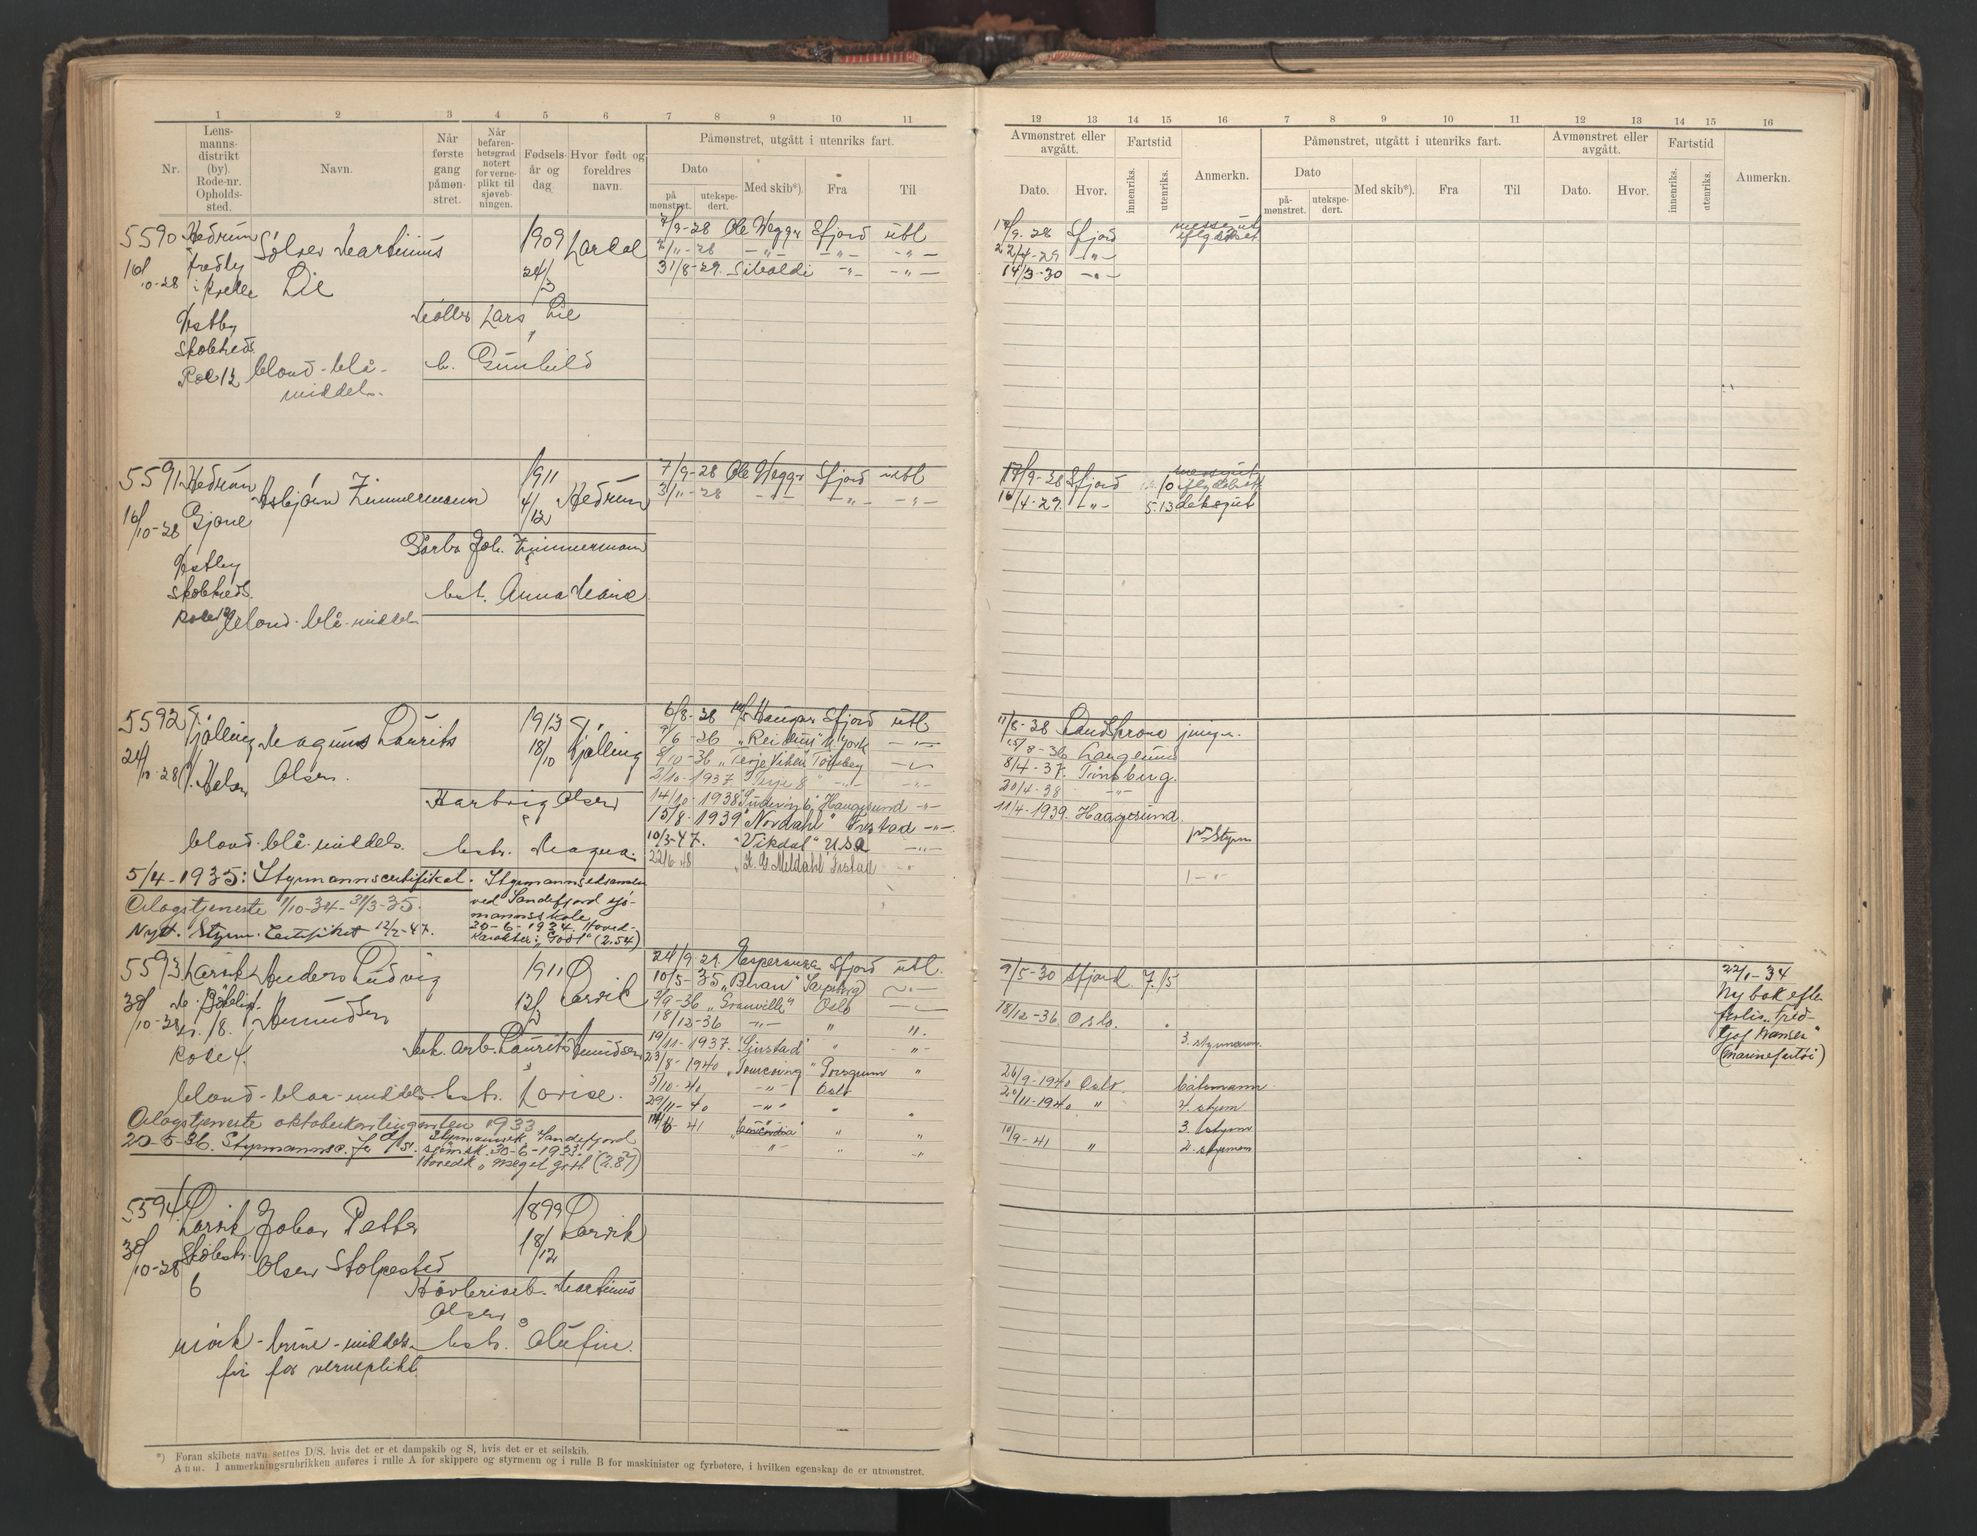 1 2 3 4 5 6 7 8 9 10 11
Nr. Lensmannsdistrikt (by). Rode-nr. Opholdssted. Navn. Når første gang påmønstret. Når befarenhetsgrad notert for verneplikt til sjøvebningen. Fødselsår og dag. Hvor født og foreldres navn. Påmønstret, utgått i utenriks fart.
Dato Med skib*). Fra Til
påmønstret. utekspedert.
12 13 14 15 16 7 8 9 10 11 12 13 14 15 16
Avmønstret eller avgått. Fartstid Anmerkn. Påmønstret, utgått i utenriks fart. Avmønstret eller avgått. Fartstid Anmerkn.
Dato. Hvor. innenriks. utenriks. Dato Med skib*). Fra Til Dato. Hvor. innenriks. utenriks.
påmønstret. utekspedert.
5590 Hedrum Sølver Martinius Lie 1909 24/3 Lardal
16/10-28
Vestby
Rode 12 blond-blå-
middels.
Møller Lars Lie
h. Gunhild
7/9-28 Ole Wegger Sfjord utl
2/11-28 -"- -"- -"-
31/8-29 Sibaldi -"- -"-
17/9-28 Sfjord
22/4-29 -"-
14/3-30 -"-
5591 Hedrum Asbjørn Zimmermann 1911 4/12 Hedrum
16/10-28 Gjone
Vestby
blond-blå-middels
Joh. Zimmermann
hst. Anna Marie
7/9-28 Ole Wegger Sfjord utl
3/11-28 -"- -"- -"-
17/9-28 Sfjord
16/4-29 -"- 5.13 deksgut
5592 Tjølling Magnus Laurits Olsen 1913 18/10 Tjølling
24/10-28
Hartvig Olsen
blond-blå-middels. hstr. Magna.
5/4-1935: Styrmannscertifikat. Styrmannseksamen
ved Sandefjord sjø-
mannsskole
20-6-1934. Hoved-
karakter: "Godt" (2.54)
Oslagstjeneste 1/10-34-31/3-35.
Nytt. Styrm. Certifikat 12/2-47.
6/8-28 Haugar Sfjord utl
/6-36 N.York -"-
8/10-36 "Terje Viken" Tønsberg
2/10-1937 "Terje 8" -"- -"-
14/10-1938 Haugesund -"-
15/8-1939 "Nordahl" Frstad -"-
10/3-47. "Vikdal" USA -"-
22/6-48 Frstad
11/8-28 Landskrona jungm.
15/8-36 Langesund
8/4-37. Tønsberg.
20/4-38 -"-
11/4-1939. Haugesund.
1ste Styrm
1 -"-
5593 Larvik Anders Ludvig Amundsen 1911 12/2 Larvik
30/10-28
nr. 18.
Rode 4.
Mek. arb. Laurits Amundsen
blond-blaa-middels. hstr. Lovise.
Oslagstjeneste oktoberkontingenten 1933
20-5-36. Styrmannsc. Styrmannsk. Sandefjord
sjømsk. 20-6-1933.
Hovedk. "Meget godt" (2.87)
24/9-29 Esperanza Sfjord utl.
10/5-35 "Bran"
/9-36 "Granville" Oslo
18/12-36 -"- " "-
19/11-1937. "Gjerstad" " "-
23/8-1940 "Tourcoing" Porsgrunn "
5/10-40 -"- Oslo
29/11-40 -"- "
14/6-41 "Concordia" " "
9/5-30 Sfjord 7.15
18/12-36 Oslo.
3. styrmann.
26/9-1940 Oslo båtsmann.
20/11-1940 " 4. styrm
3. styrm
10/9-41 " 2. styrmann
22/1-34
Ny bok efter
forlis "Fridtjof Nansen"
(marinefartøi)
5594 Larvik Johan Petter 1899 18/12 Larvik
30/10-28 Olsen Stolpestad
6
Høvleriarb. Martinius
Olsen
mørk-brune-middels. hstr. Olufine.
fri for verneplikt.
*) Foran skibets navn settes D/S, hvis det er et dampskib og S, hvis det er et seilskib.
Anm. I anmerkningsrubrikken anføres i rulle A for skippere og styrmenn og i rulle B for maskinister og fyrbøtere, i hvilken egenskap de er utmønstret.